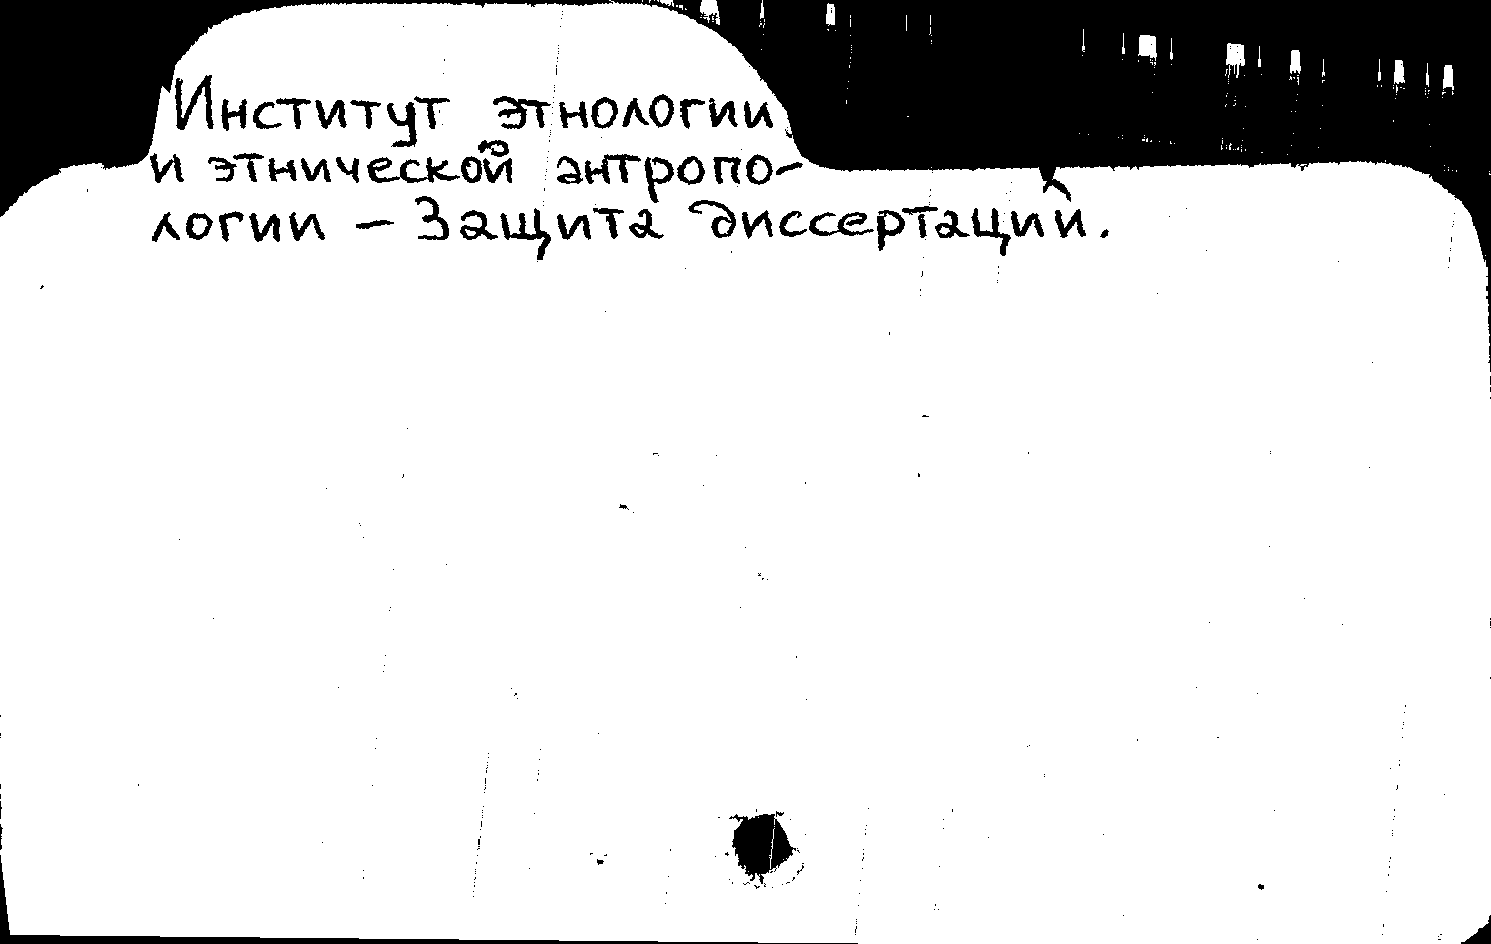 Институт этнологии
и этнической антропо-
логии – Защита диссертаций.